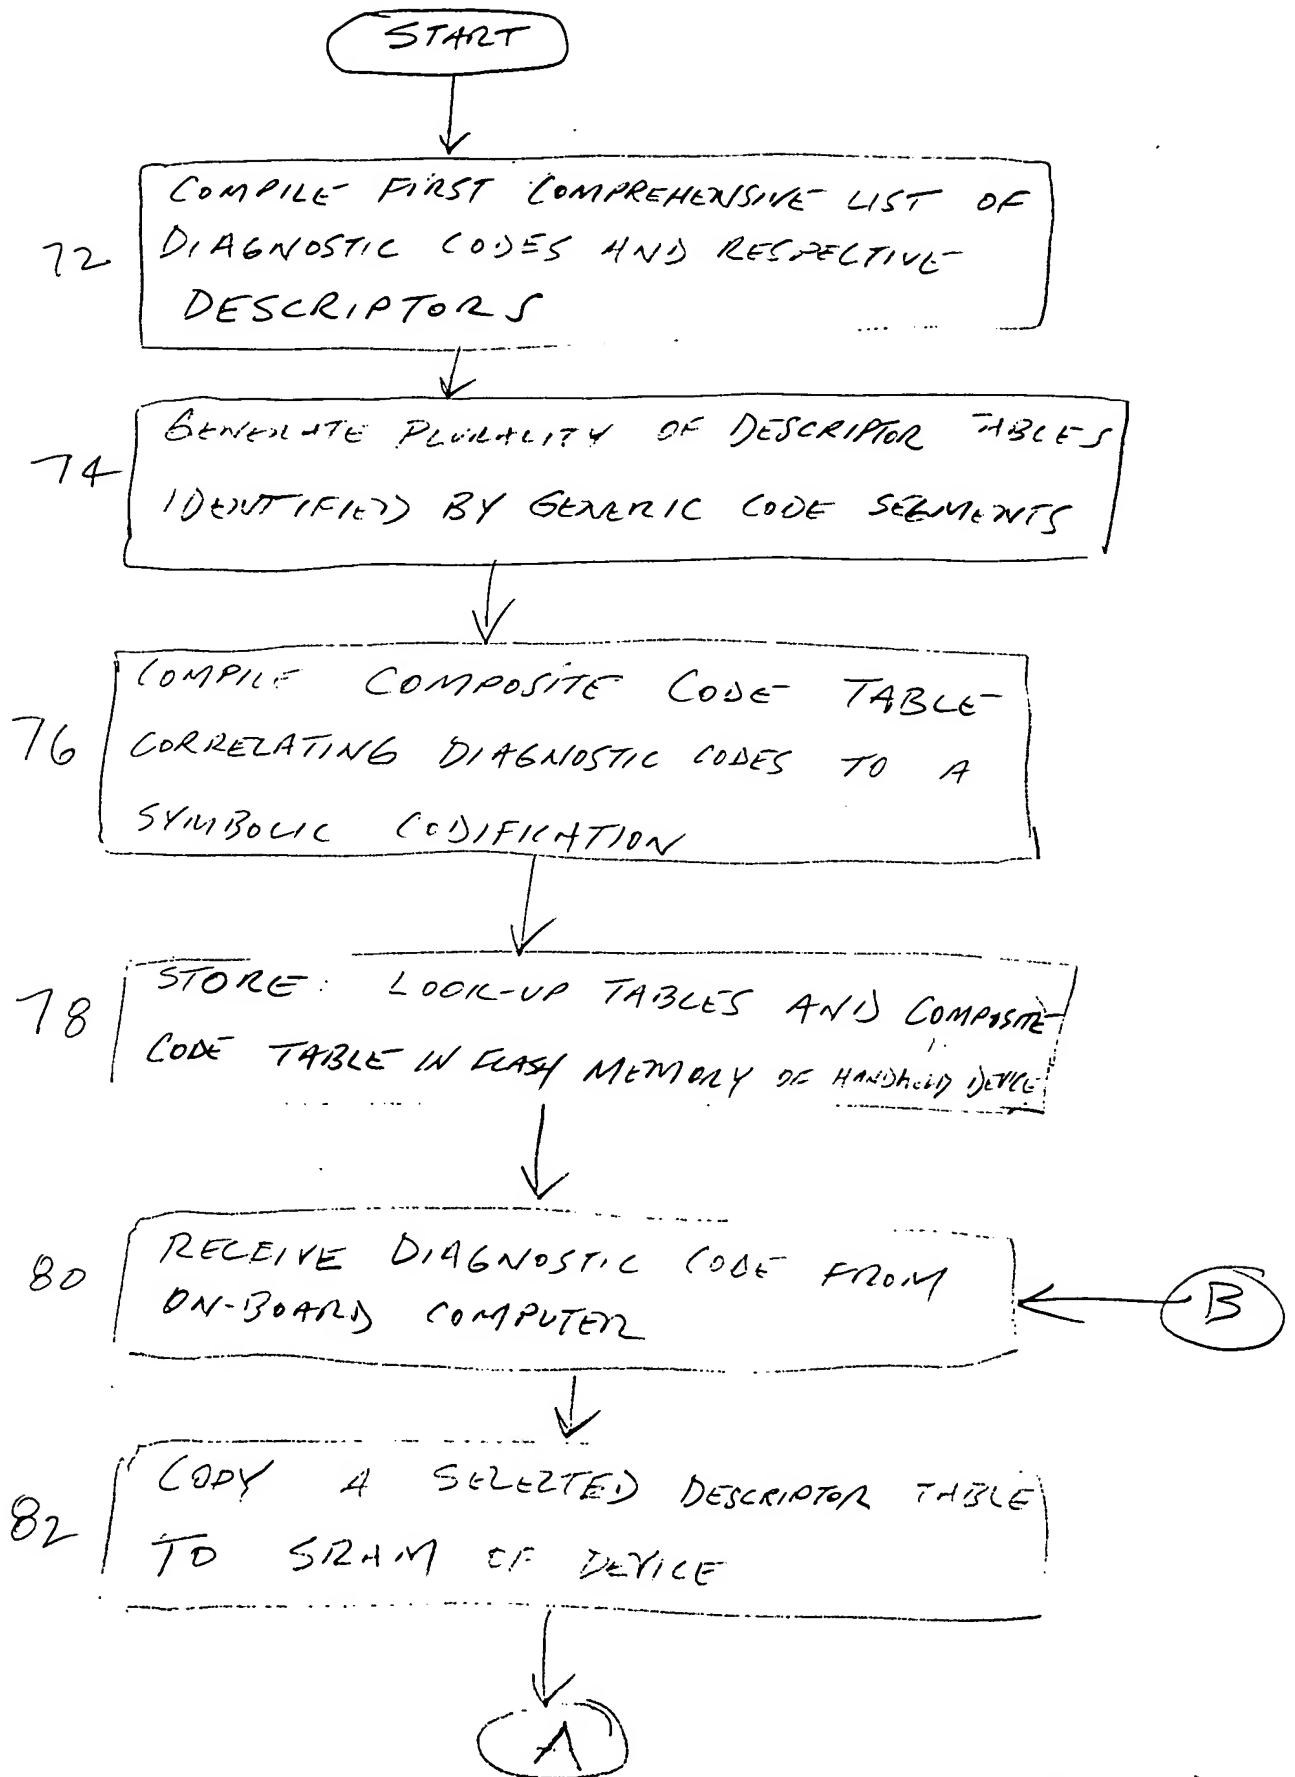 START
COMPILE FIRST COMPREHENSIVE LIST OF
72
DIAGNOSTIC CODES AND RESPECTIVE
DESCRIPTORS
GENERATE PLURALITY OF DESCRIPTOR TABLES
74
IDENTIFIED BY GENERIC CODE SEGMENTS
COMPILE COMPOSITE CODE TABLE
76
CORRELATING DIAGNOSTIC CODES TO A
SYMBOLIC CODIFICATION
STORE: LOOK-UP TABLES AND COMPOSITE
78
CODE TABLE IN FLASH MEMORY OF HANDHELD DEVICE
RECEIVE DIAGNOSTIC CODE FROM
80
ON-BOARD COMPUTER
B
COPY A SELECTED DESCRIPTOR TABLE
82
TO SRAM OF DEVICE
A